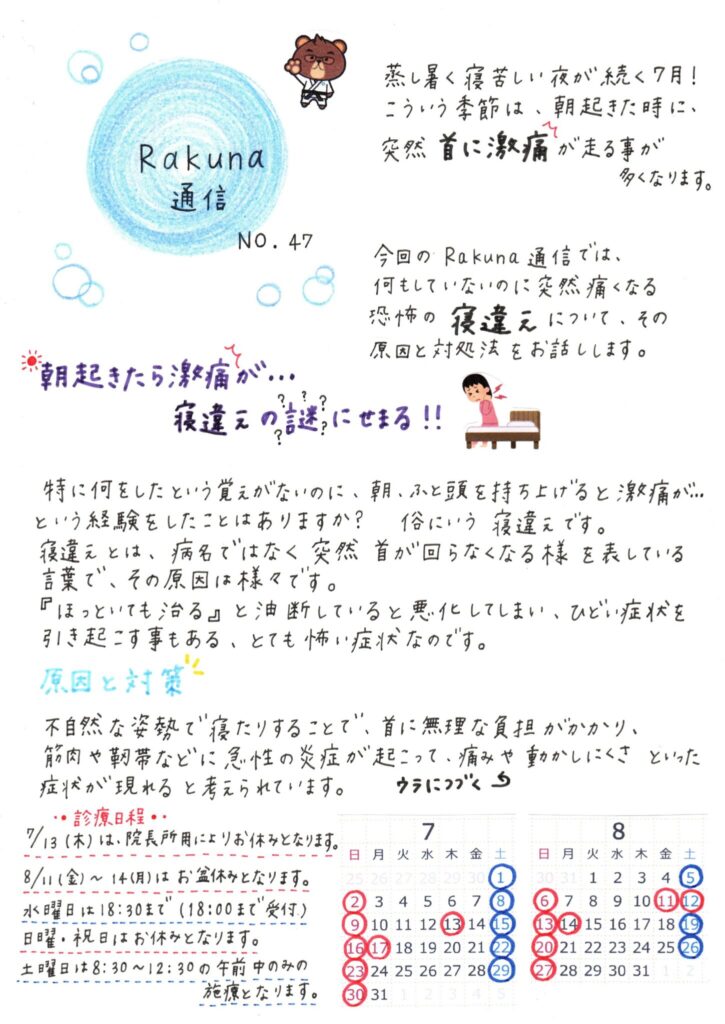 Rakuna
通信
NO. 47
蒸し暑く寝苦しい夜が続く7月！
こういう季節は、朝起きた時に、
突然 首に激痛 が走る事が
多くなります。
今回の Rakuna 通信では、
何もしていないのに突然痛くなる
恐怖の 寝違え について、その
原因と対処法をお話しします。
朝起きたら激痛が...
寝違えの謎にせまる！！
? ? ? ? ?
特に何をしたという覚えがないのに、朝、ふと頭を持ち上げると激痛が...
という経験をしたことはありますか？ 俗にいう 寝違えです。
寝違えとは、病名ではなく 突然 首が回らなくなる様 を表している
言葉で、その原因は様々です。
『ほっといても治る』と油断していると悪化してしまい、ひどい症状を
引き起こす事もある、とても怖い症状なのです。
原因と対策
不自然な姿勢で寝たりすることで、首に無理な負担がかかり、
筋肉や靭帯などに急性の炎症が起こって、痛みや動かしにくさ といった
症状が現れると考えられています。 ウラにつづく
・・診療日程・・
7/13(木)は、院長所用によりお休みとなります。
8/11(金)～14(月)は お盆休みとなります。
水曜日は18:30まで(18:00まで受付)
日曜・祝日はお休みとなります。
土曜日は8:30～12:30の午前中のみの
施療となります。
7
日 月 火 水 木 金 土
25 26 27 28 29 30 1
2 3 4 5 6 7 8
9 10 11 12 13 14 15
16 17 18 19 20 21 22
23 24 25 26 27 28 29
30 31 1 2 3 4 5
8
日 月 火 水 木 金 土
30 31 1 2 3 4 5
6 7 8 9 10 11 12
13 14 15 16 17 18 19
20 21 22 23 24 25 26
27 28 29 30 31 1 2